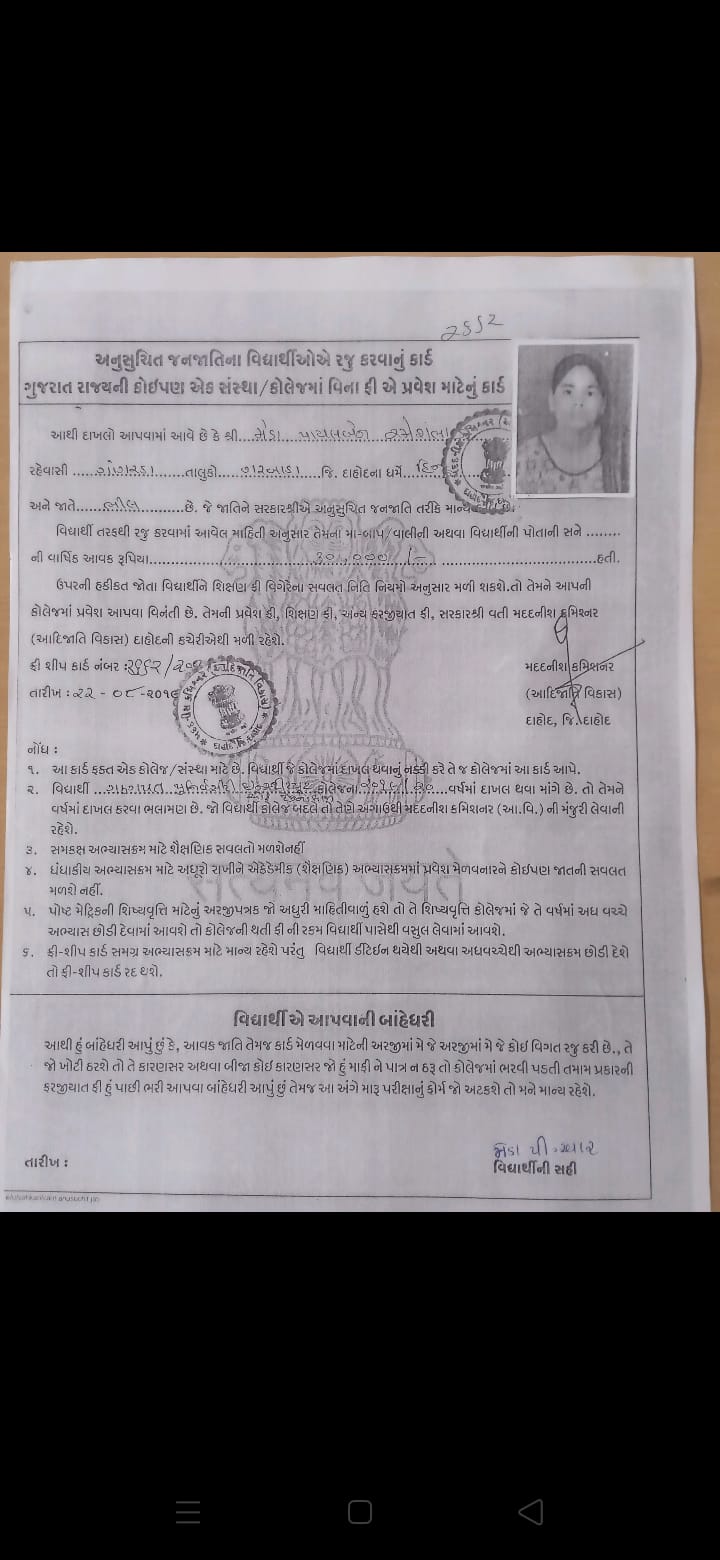 અનુસુચિત જનજાતિના વિદ્યાર્થીઓએ રજુ કરવાનું કાર્ડ
ગુજરાત રાજ્યની કોઈપણ એક સંસ્થા/કોલેજમાં વિના ફી એ પ્રવેશ માટેનું કાર્ડ
આથી દાખલો આપવામાં આવે છે કે શ્રી....મેડા પાયલબેન
રહેવાસી ...... તાલુકો ...... જિ. દાહોદના ધર્મે...
અને જાતે....ભીલ....છે. જે જાતિને સરકારશ્રીએ અનુસુચિત જનજાતિ તરીકે માન્ય
વિદ્યાર્થી તરફથી રજુ કરવામાં આવેલ માહિતી અનુસાર તેમના મા-બાપ/વાલીની અથવા વિદ્યાર્થીની પોતાની સને ........
ની વાર્ષિક આવક રૂપિયા..............................હતી.
ઉપરની હકીકત જોતા વિદ્યાર્થીને શિક્ષણ ફી વિગેરેના સવલત નિતિ નિયમો અનુસાર મળી શકશે.તો તેમને આપની
કોલેજમાં પ્રવેશ આપવા વિનંતી છે. તેમની પ્રવેશ ફી, શિક્ષણ ફી, અન્ય ફરજીયાત ફી, સરકારશ્રી વતી મદદનીશ કમિશ્નર
(આદિજાતિ વિકાસ) દાહોદની કચેરીએથી મળી રહેશે.
ફી શીપ કાર્ડ નંબર :
મદદનીશ કમિશનર
તારીખ : ૨૨ - ૦૮ -૨૦૧૯
(આદિજાતિ વિકાસ)
દાહોદ, જિ. દાહોદ
નોંધ :
૧. આ કાર્ડ ફક્ત એક કોલેજ/સંસ્થા માટે છે. વિદ્યાર્થી જે કોલેજમાં દાખલ થવાનું નક્કી કરે તે જ કોલેજમાં આ કાર્ડ આપે.
૨. વિદ્યાર્થી ...ગુજરાત યુનિવર્સીટી કોલેજના.......વર્ષમાં દાખલ થવા માંગે છે. તો તેમને
વર્ષમાં દાખલ કરવા ભલામણ છે. જો વિદ્યાર્થી કોલેજ બદલે તો તેણે અગાઉથી મદદનીશ કમિશનર (આ.વિ.) ની મંજુરી લેવાની
રહેશે.
૩. સમકક્ષ અભ્યાસક્રમ માટે શૈક્ષણિક સવલતો મળશેનહીં
૪. ધંધાકીય અભ્યાસક્રમ માટે અધુરો રાખીને એકેડેમીક (શૈક્ષણિક) અભ્યાસક્રમમાં પ્રવેશ મેળવનારને કોઈપણ જાતની સવલત
મળશે નહીં.
૫. પોષ્ટ મેટ્રિકની શિષ્યવૃત્તિ માટેનું અરજીપત્રક જો અધુરી માહિતીવાળું હશે તો તે શિષ્યવૃત્તિ કોલેજમાં જે તે વર્ષમાં અધ વચ્ચે
અભ્યાસ છોડી દેવામાં આવશે તો કોલેજની થતી ફી ની રકમ વિદ્યાર્થી પાસેથી વસુલ લેવામાં આવશે.
૬. ફી-શીપ કાર્ડ સમગ્ર અભ્યાસક્રમ માટે માન્ય રહેશે પરંતુ વિદ્યાર્થી ડીટેઈન થયેથી અથવા અધવચ્ચેથી અભ્યાસક્રમ છોડી દેશે
તો ફી-શીપ કાર્ડ રદ થશે.
सत्यमेव जयते
વિદ્યાર્થી એ આપવાની બાંહેધરી
આથી હું બાંહેધરી આપું છું કે, આવક જાતિ તેમજ કાર્ડ મેળવવા માટેની અરજીમાં મે જે અરજીમાં મે જે કોઈ વિગત રજુ કરી છે., તે
જો ખોટી ઠરશે તો તે કારણસર અથવા બીજા કોઈ કારણસર જો હું માફી ને પાત્ર ન ઠરૂ તો કોલેજમાં ભરવી પડતી તમામ પ્રકારની
ફરજીયાત ફી હું પાછી ભરી આપવા બાંહેધરી આપું છું તેમજ આ અંગે મારૂ પરીક્ષાનું ફોર્મ જો અટકશે તો મને માન્ય રહેશે.
મેડા પી.આર
તારીખ :
વિદ્યાર્થીની સહી